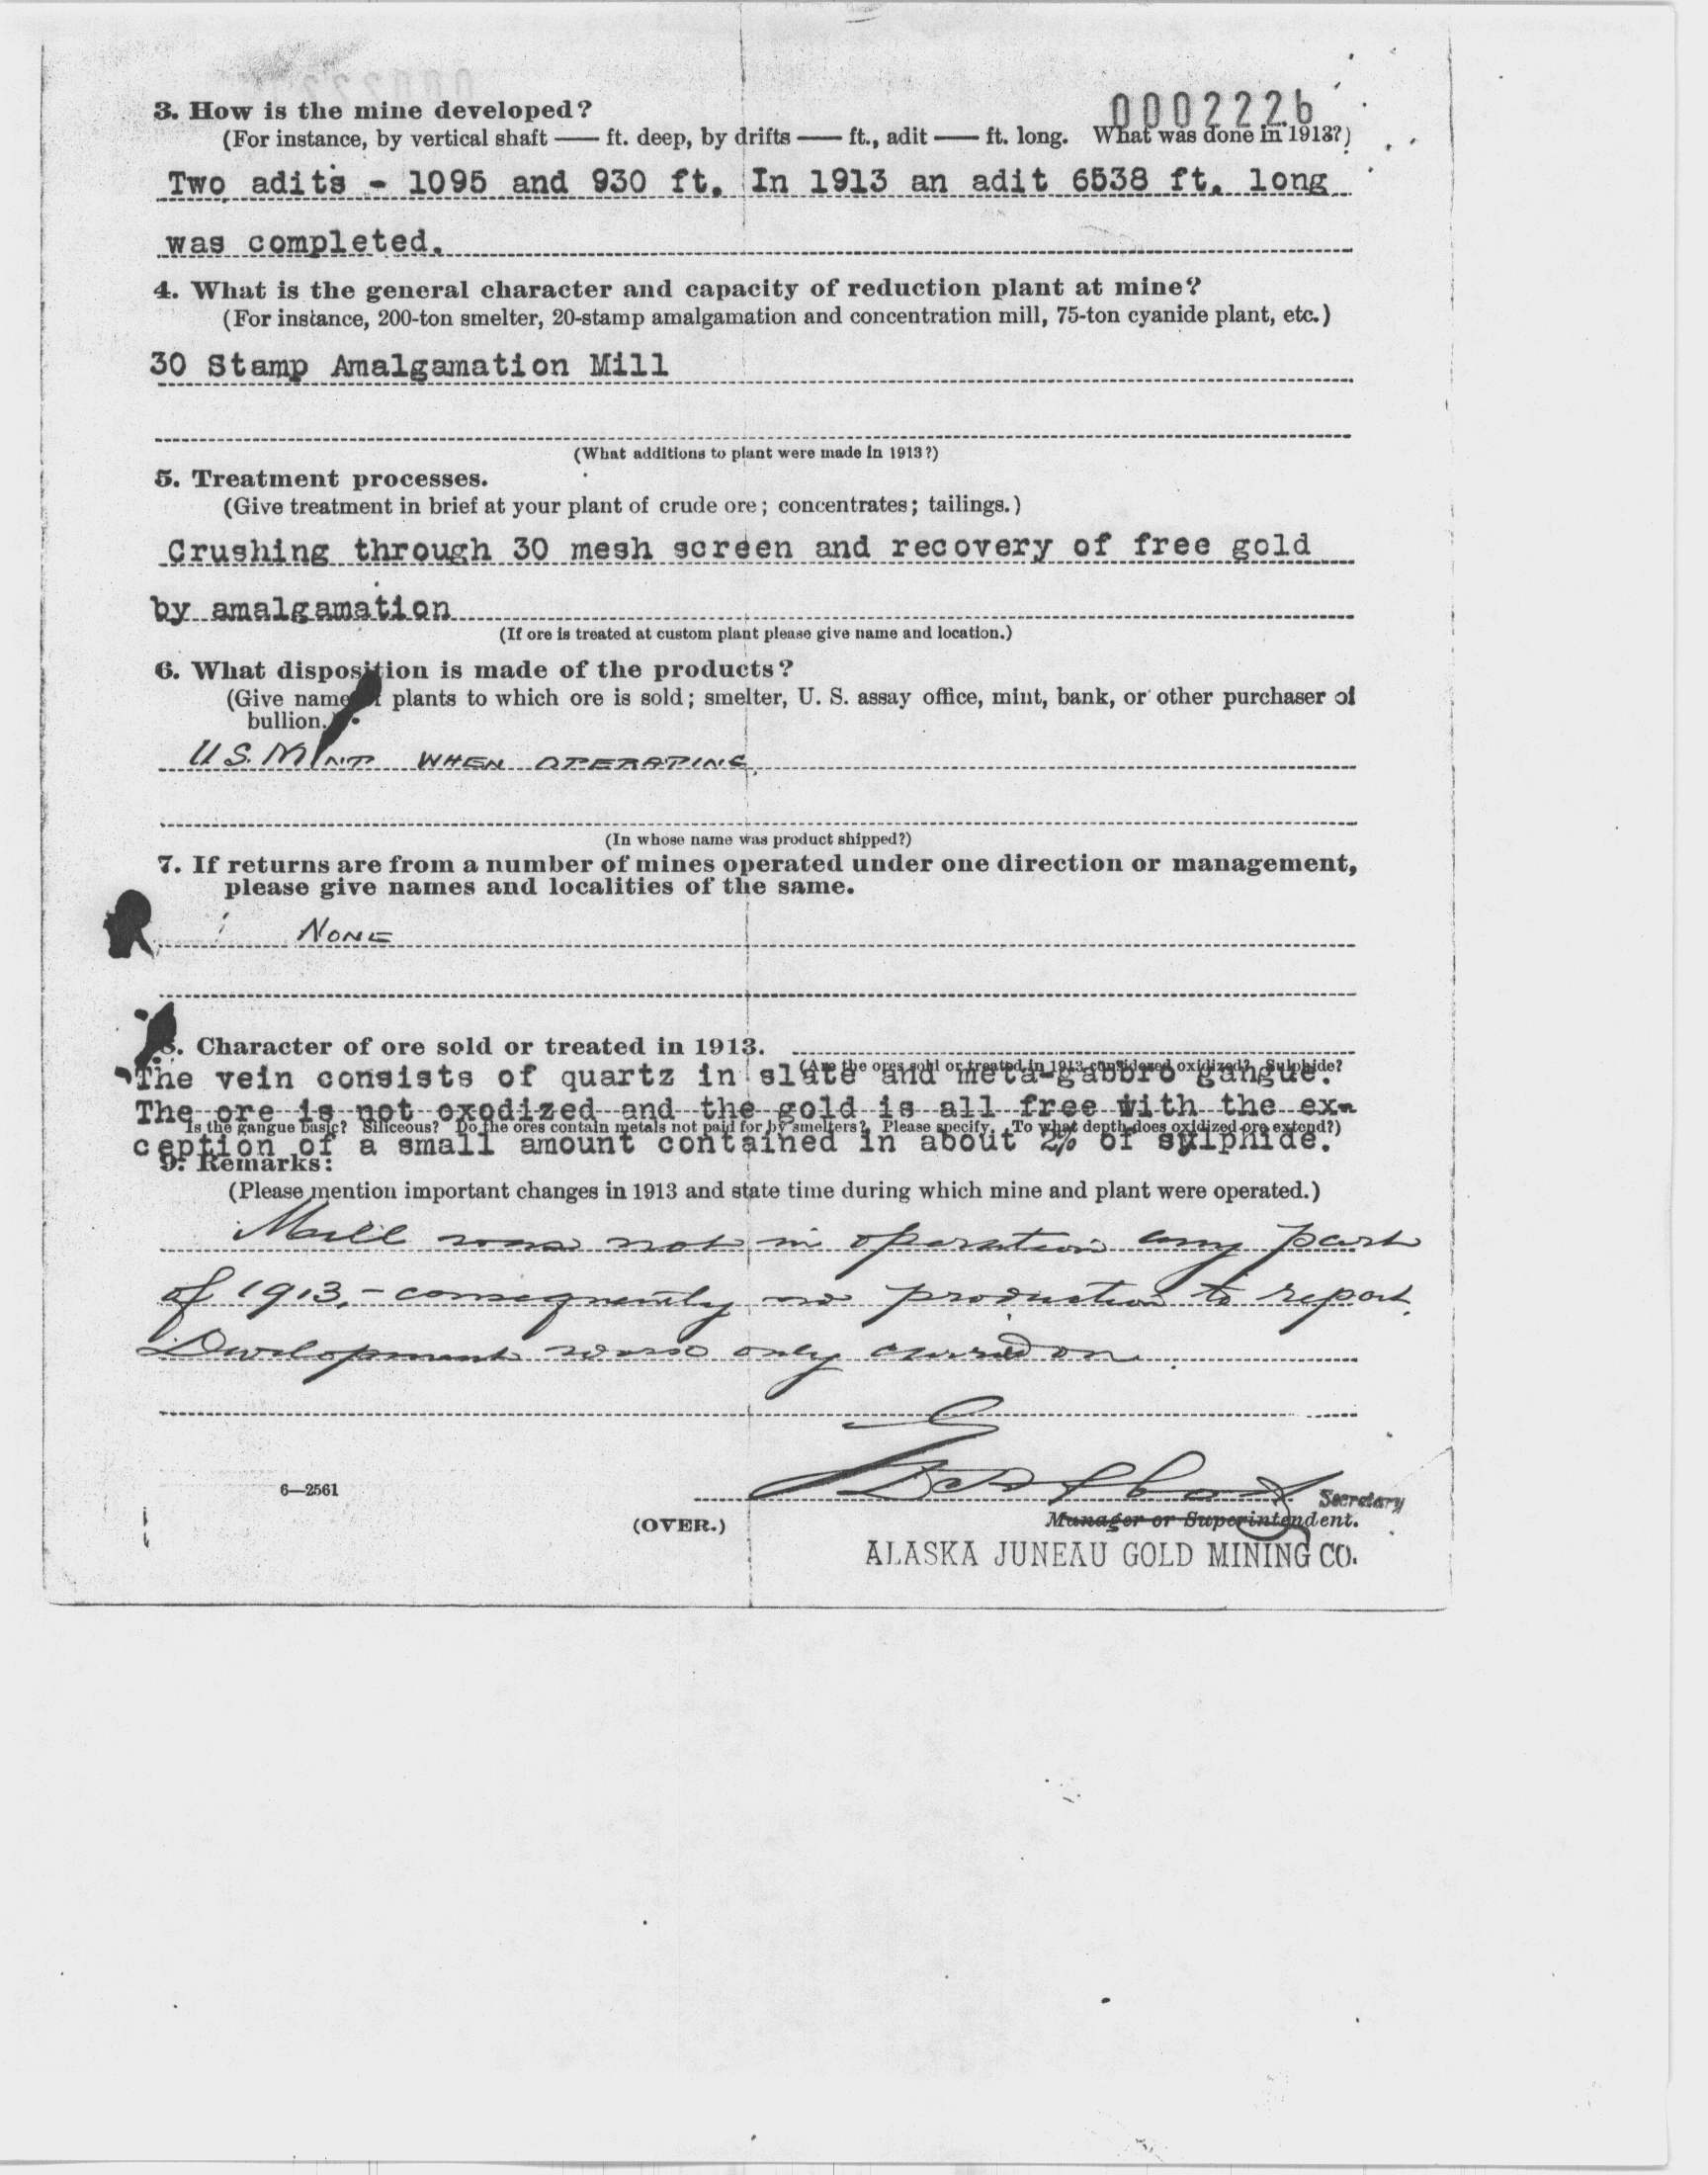 0002226
3. How is the mine developed?
(For instance, by vertical shaft —— ft. deep, by drifts —— ft., adit —— ft. long. What was done in 1913?)
Two adits - 1095 and 930 ft. In 1913 an adit 6538 ft. long
was completed.
4. What is the general character and capacity of reduction plant at mine?
(For instance, 200-ton smelter, 20-stamp amalgamation and concentration mill, 75-ton cyanide plant, etc.)
30 Stamp Amalgamation Mill
(What additions to plant were made in 1913?)
5. Treatment processes.
(Give treatment in brief at your plant of crude ore; concentrates; tailings.)
Crushing through 30 mesh screen and recovery of free gold
by amalgamation
(If ore is treated at custom plant please give name and location.)
6. What disposition is made of the products?
(Give name plants to which ore is sold; smelter, U. S. assay office, mint, bank, or other purchaser of
bullion.
U.S. MINT WHEN OPERATING.
(In whose name was product shipped?)
7. If returns are from a number of mines operated under one direction or management,
please give names and localities of the same.
NONE
8. Character of ore sold or treated in 1913.
(Are the ores sold or treated in 1913 considered oxidized? Sulphide?
The vein consists of quartz in slate and meta-gabbro gangue.
The ore is not oxodized and the gold is all free with the ex-
Is the gangue basic? Siliceous? Do the ores contain metals not paid for by smelters? Please specify. To what depth does oxidized ore extend?)
ception of a small amount contained in about 2% of sylphide.
9. Remarks:
(Please mention important changes in 1913 and state time during which mine and plant were operated.)
Mill was not in operation any part
of 1913, - consequently no production to report.
Development work only carried on.
6—2561
Secretary
(OVER.)
Manager or Superintendent.
ALASKA JUNEAU GOLD MINING CO.